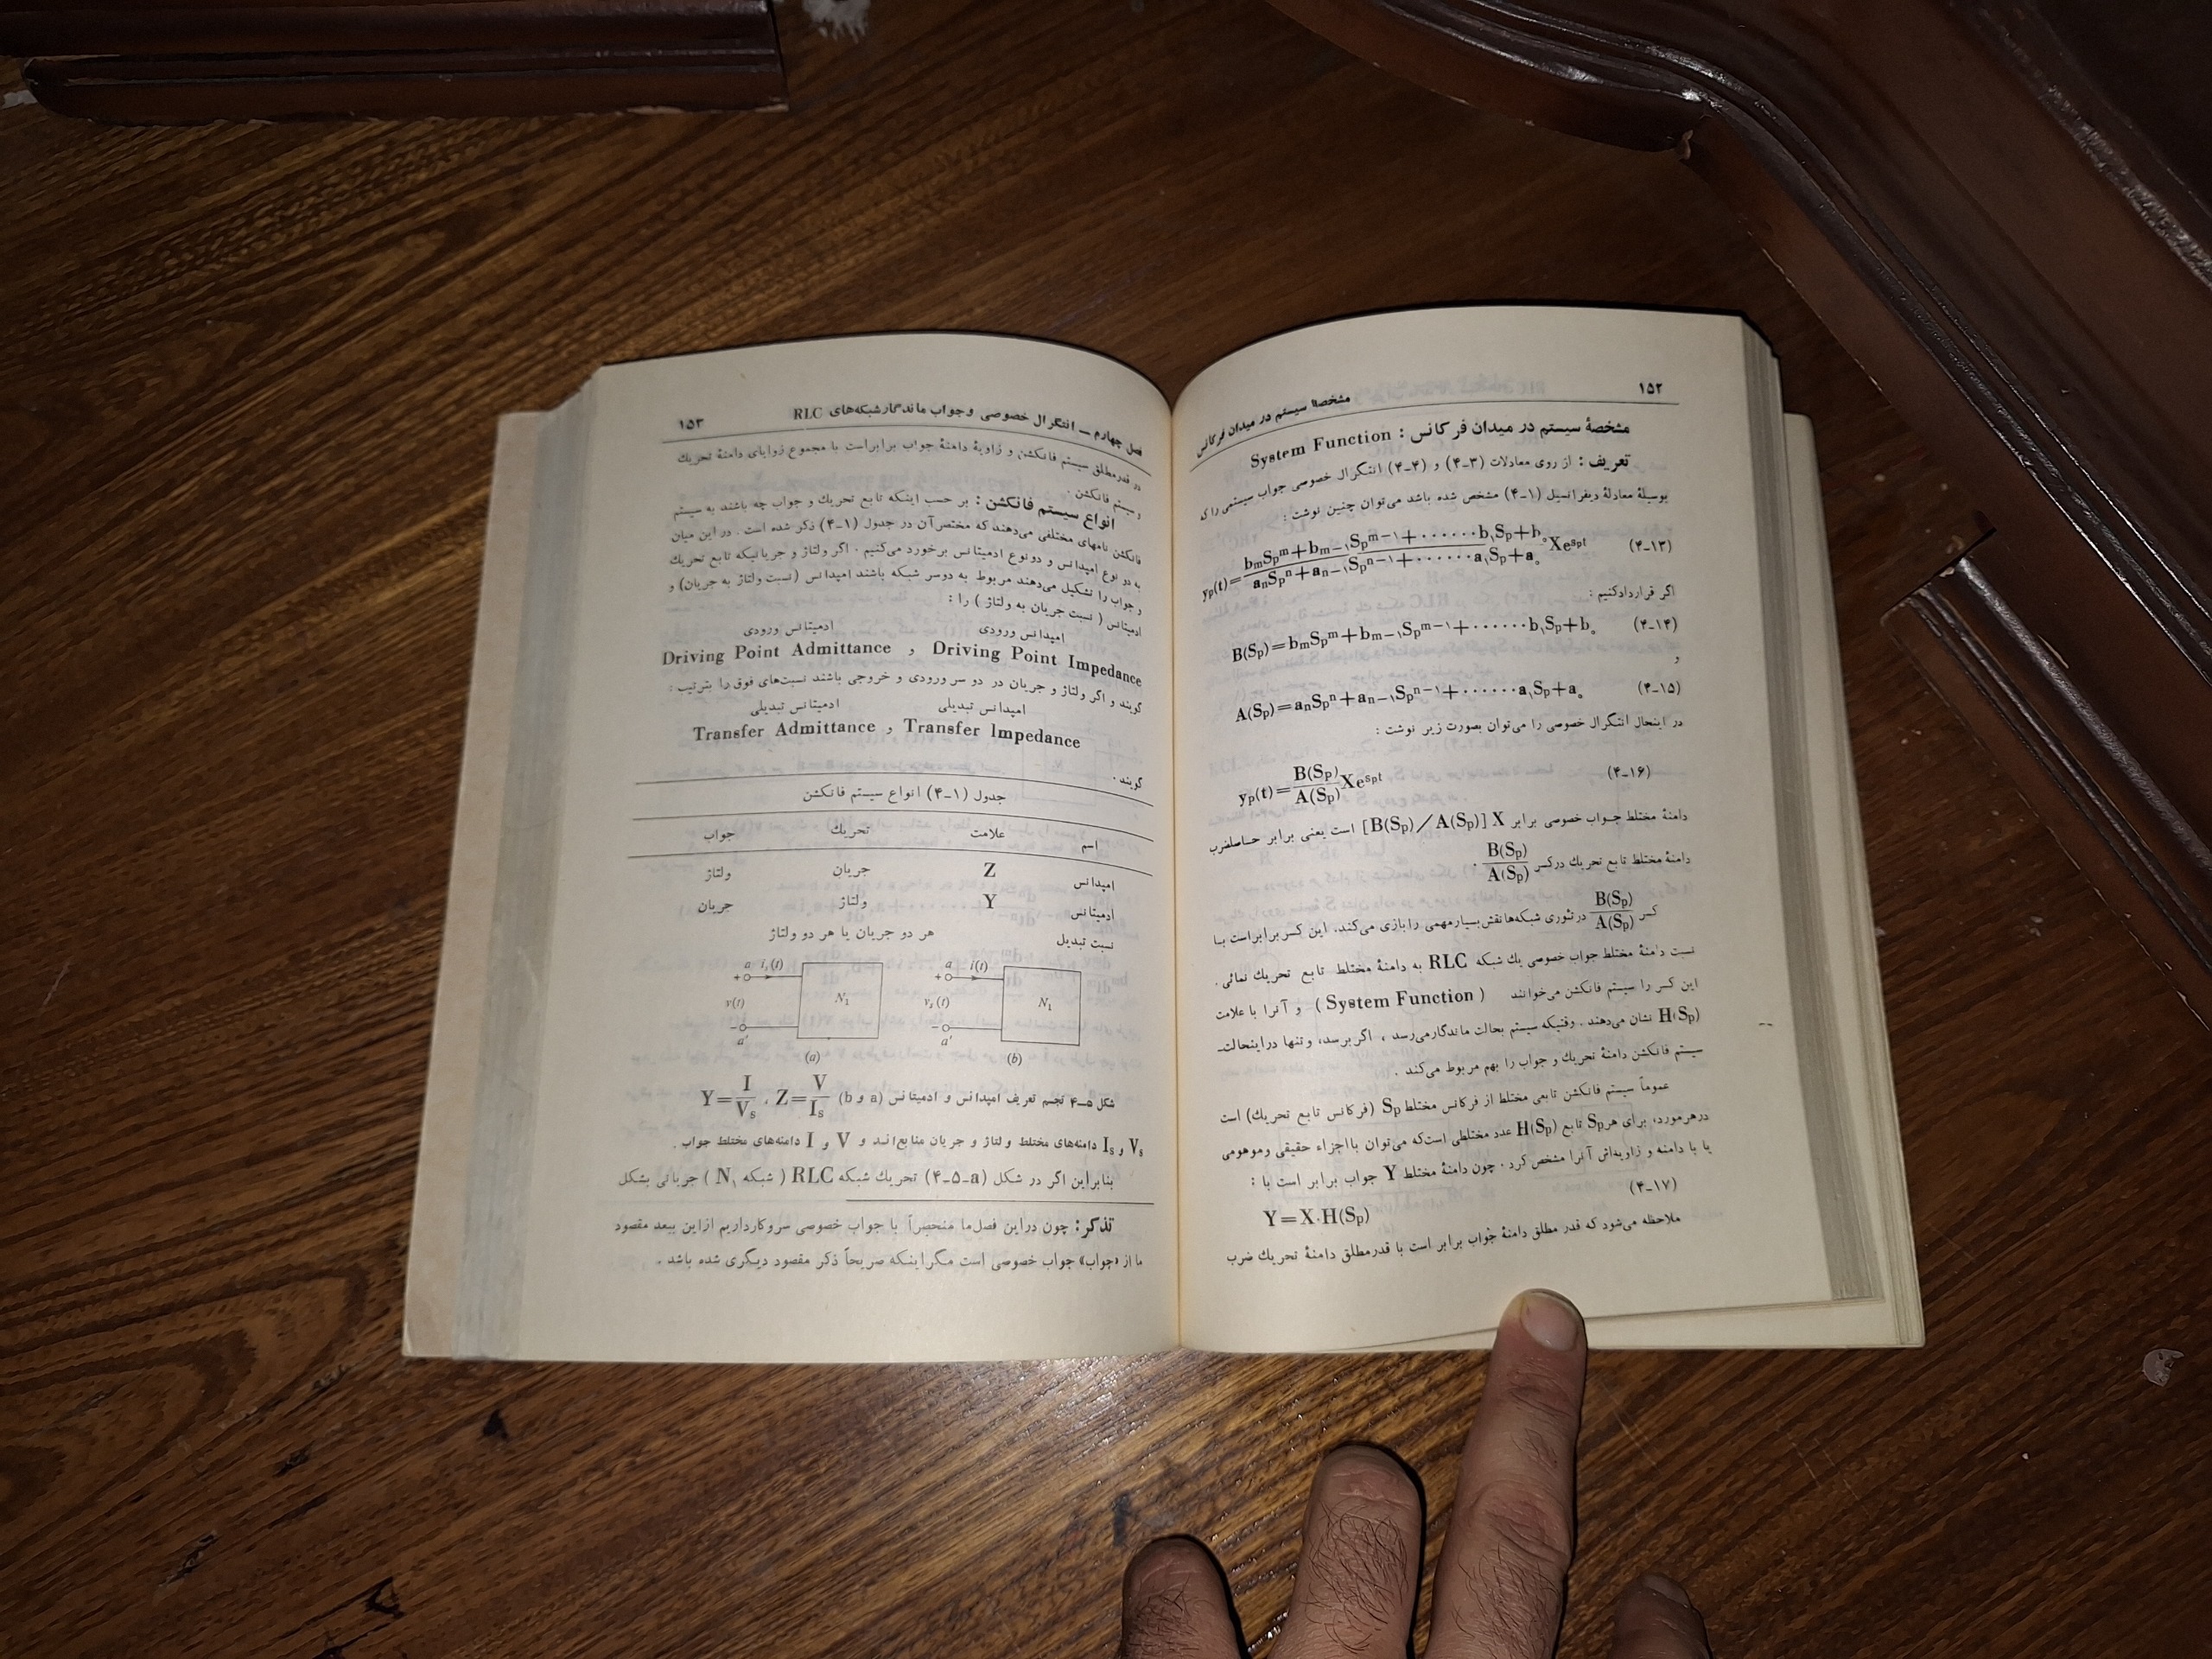 ۱۵۲
مشخصهٔ سیستم در میدان فرکانس
مشخصهٔ سیستم در میدان فرکانس : System Function
تعریف : از روی معادلات (۳-۴) و (۴-۴) انتگرال خصوصی جواب سیستمی را که
بوسیلهٔ معادلهٔ دیفرانسیل (۱-۴) مشخص شده باشد می‌توان چنین نوشت :
(۴-۱۳) yp(t)=(bmSp^m+bm-۱Sp^m-۱+······b۱Sp+b۰)/(anSp^n+an-۱Sp^n-۱+······a۱Sp+a۰) Xe^spt
اگر قرارداد کنیم :
(۴-۱۴) B(Sp)=bmSp^m+bm-۱Sp^m-۱+······b۱Sp+b۰
و
(۴-۱۵) A(Sp)=anSp^n+an-۱Sp^n-۱+······a۱Sp+a۰
در اینحال انتگرال خصوصی را می‌توان بصورت زیر نوشت :
(۴-۱۶) yp(t)=B(Sp)/A(Sp) Xe^spt
دامنهٔ مختلط جواب خصوصی برابر X [B(Sp)/A(Sp)] است یعنی برابر حاصلضرب
دامنهٔ مختلط تابع تحریك در کسر B(Sp)/A(Sp) .
کسر B(Sp)/A(Sp) در تئوری شبکه‌ها نقش بسیار مهمی را بازی می‌کند، این کسر برابر است با
نسبت دامنهٔ مختلط جواب خصوصی یك شبکه RLC به دامنهٔ مختلط تابع تحریك نمائی .
این کسر را سیستم فانکشن می‌خوانند ( System Function ) و آنرا با علامت
H(Sp) نشان می‌دهند . وقتیکه سیستم بحالت ماندگار می‌رسد ، اگر برسد، و تنها در اینحالت-
سیستم فانکشن دامنهٔ تحریك و جواب را بهم مربوط می‌کند .
عموماً سیستم فانکشن تابعی مختلط از فرکانس مختلط Sp (فرکانس تابع تحریك) است
در هر مورد، برای هر Sp تابع H(Sp) عدد مختلطی است که می‌توان با اجزاء حقیقی و موهومی
یا با دامنه و زاویه‌اش آنرا مشخص کرد . چون دامنهٔ مختلط Y جواب برابر است با :
(۴-۱۷)
Y=X·H(Sp)
ملاحظه می‌شود که قدر مطلق دامنهٔ جواب برابر است با قدرمطلق دامنهٔ تحریك ضرب
فصل چهارم ــ انتگرال خصوصی و جواب ماندگار شبکه‌های RLC
۱۵۳
در قدرمطلق سیستم فانکشن و زاویهٔ دامنهٔ جواب برابر است با مجموع زوایای دامنهٔ تحریك
و سیستم فانکشن .
انواع سیستم فانکشن : بر حسب اینکه تابع تحریك و جواب چه باشند به سیستم
فانکشن نامهای مختلفی می‌دهند که مختصر آن در جدول (۱-۴) ذکر شده است . در این میان
به دو نوع امپدانس و دو نوع ادمیتانس برخورد می‌کنیم . اگر ولتاژ و جریانیکه تابع تحریك
و جواب را تشکیل می‌دهند مربوط به دوسر شبکه باشند امپدانس (نسبت ولتاژ به جریان) و
ادمیتانس ( نسبت جریان به ولتاژ ) را :
امپدانس ورودی ادمیتانس ورودی
Driving Point Admittance , Driving Point Impedance
گویند و اگر ولتاژ و جریان در دو سر ورودی و خروجی باشند نسبت‌های فوق را بترتیب :
امپدانس تبدیلی ادمیتانس تبدیلی
Transfer Admittance , Transfer Impedance
گویند .
جدول (۱-۴) انواع سیستم فانکشن
اسم علامت تحریك جواب
امپدانس Z جریان ولتاژ
ادمیتانس Y ولتاژ جریان
نسبت تبدیل هر دو جریان یا هر دو ولتاژ
a is(t) + v(t) N1 - a'
(a)
a i(t) + vs(t) N1 - a'
(b)
شکل ۵-۴ تجسم تعریف امپدانس و ادمیتانس (a و b) Z=V/Is ، Y=I/Vs
Vs و Is دامنه‌های مختلط ولتاژ و جریان منابع‌اند و V و I دامنه‌های مختلط جواب .
بنابراین اگر در شکل (۴-۵-a) تحریك شبکه RLC ( شبکه N۱ ) جریانی بشکل
تذکر : چون در این فصل ما منحصراً با جواب خصوصی سروکار داریم از این ببعد مقصود
ما از «جواب» جواب خصوصی است مگر اینکه صریحاً ذکر مقصود دیگری شده باشد .